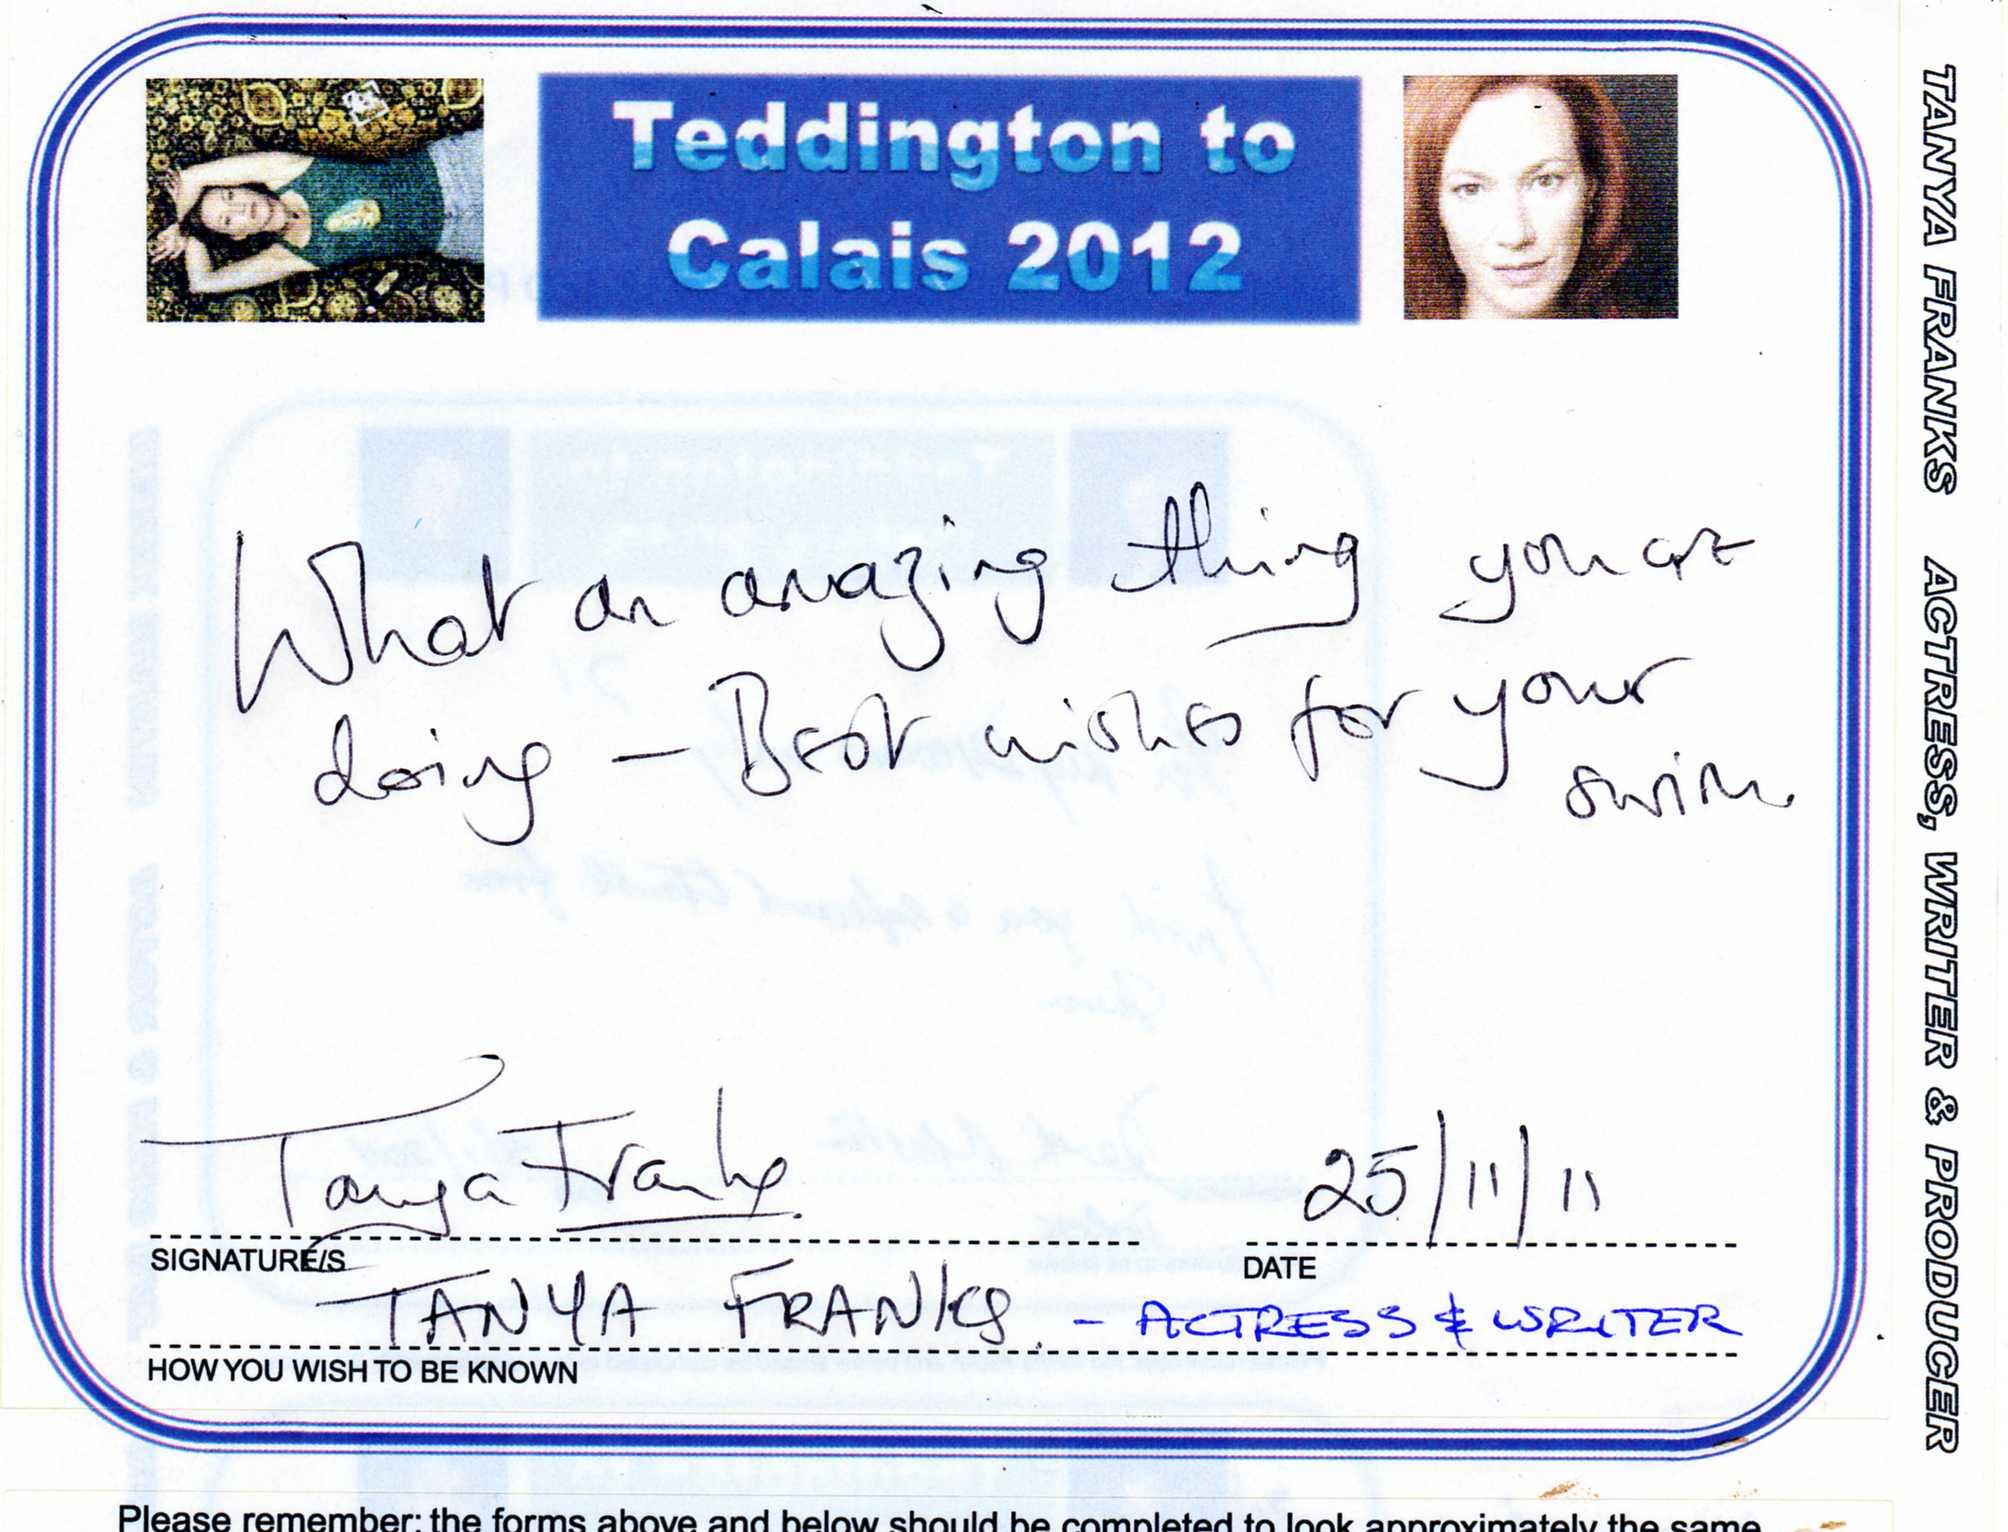 Teddington to
Calais 2012
What an amazing thing you are
doing – Best wishes for your
swim
Tanya Franks
25/11/11
SIGNATURE/S
DATE
TANYA FRANKS. - ACTRESS & WRITER
HOW YOU WISH TO BE KNOWN
Please remember: the forms above and below should be completed to look approximately the same
TANYA FRANKS ACTRESS, WRITER & PRODUCER